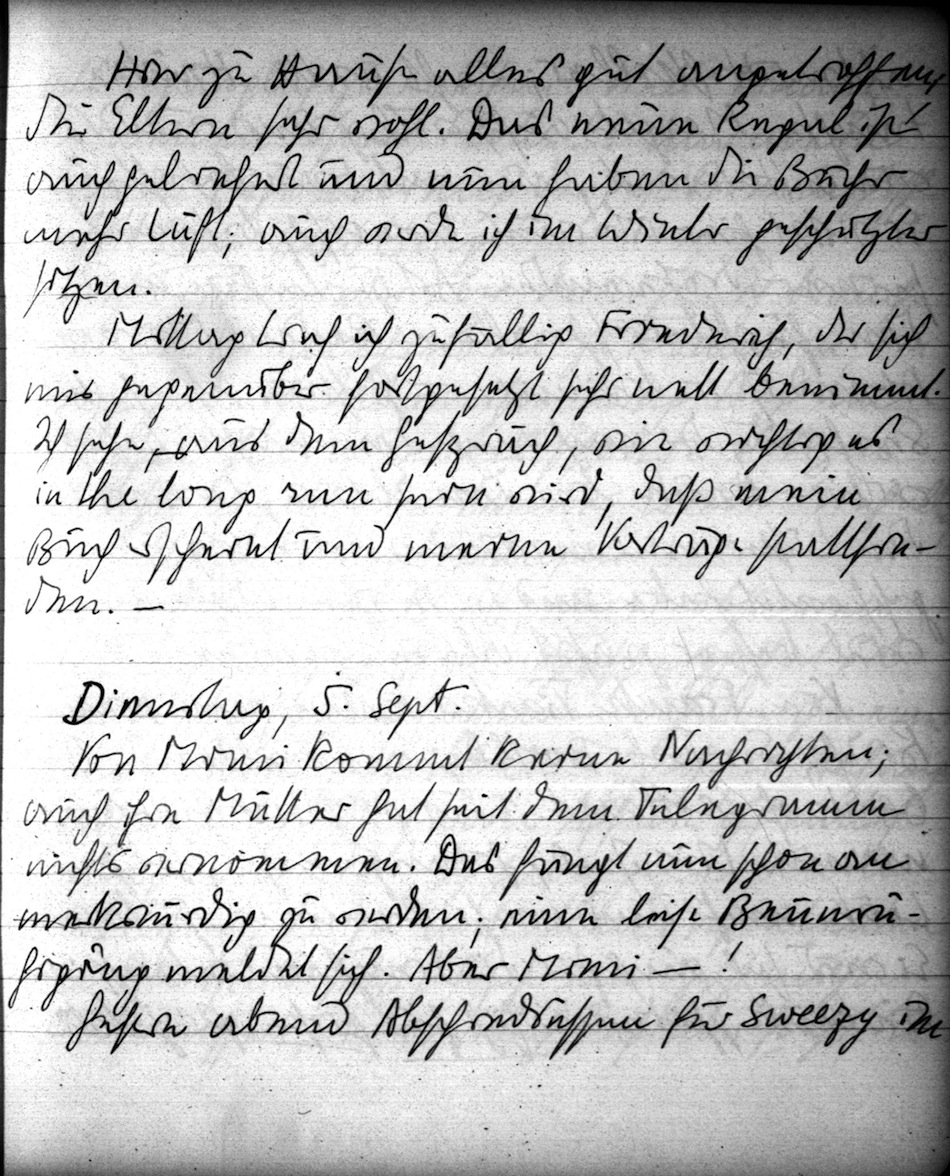 Hier zu Hause alles gut angetroffen,
die Eltern sehr wohl. Das neue Regal ist
auch geliefert und nun haben die Bücher
mehr Luft; auch werde ich im Winter geschützter
sitzen.
Mittag sprach ich zufällig Friedrich, der sich
mir gegenüber fortgesetzt sehr nett benimmt.
Ich sehe, aus dem Gespräch, wie wichtig es
in the long run sein wird, daß mein
Buch erscheint und meine Vorträge stattfin-
den. —
Dienstag, 5. Sept.
Von Mimi kommt keine Nachrichten;
auch ihre Mutter hat seit dem Telegramm
nichts vernommen. Das fängt nun schon an
merkwürdig zu werden; eine leise Beunru-
higung meldet sich. Aber Mimi — !
Gestern abend Abschiedsessen für Sweezy im